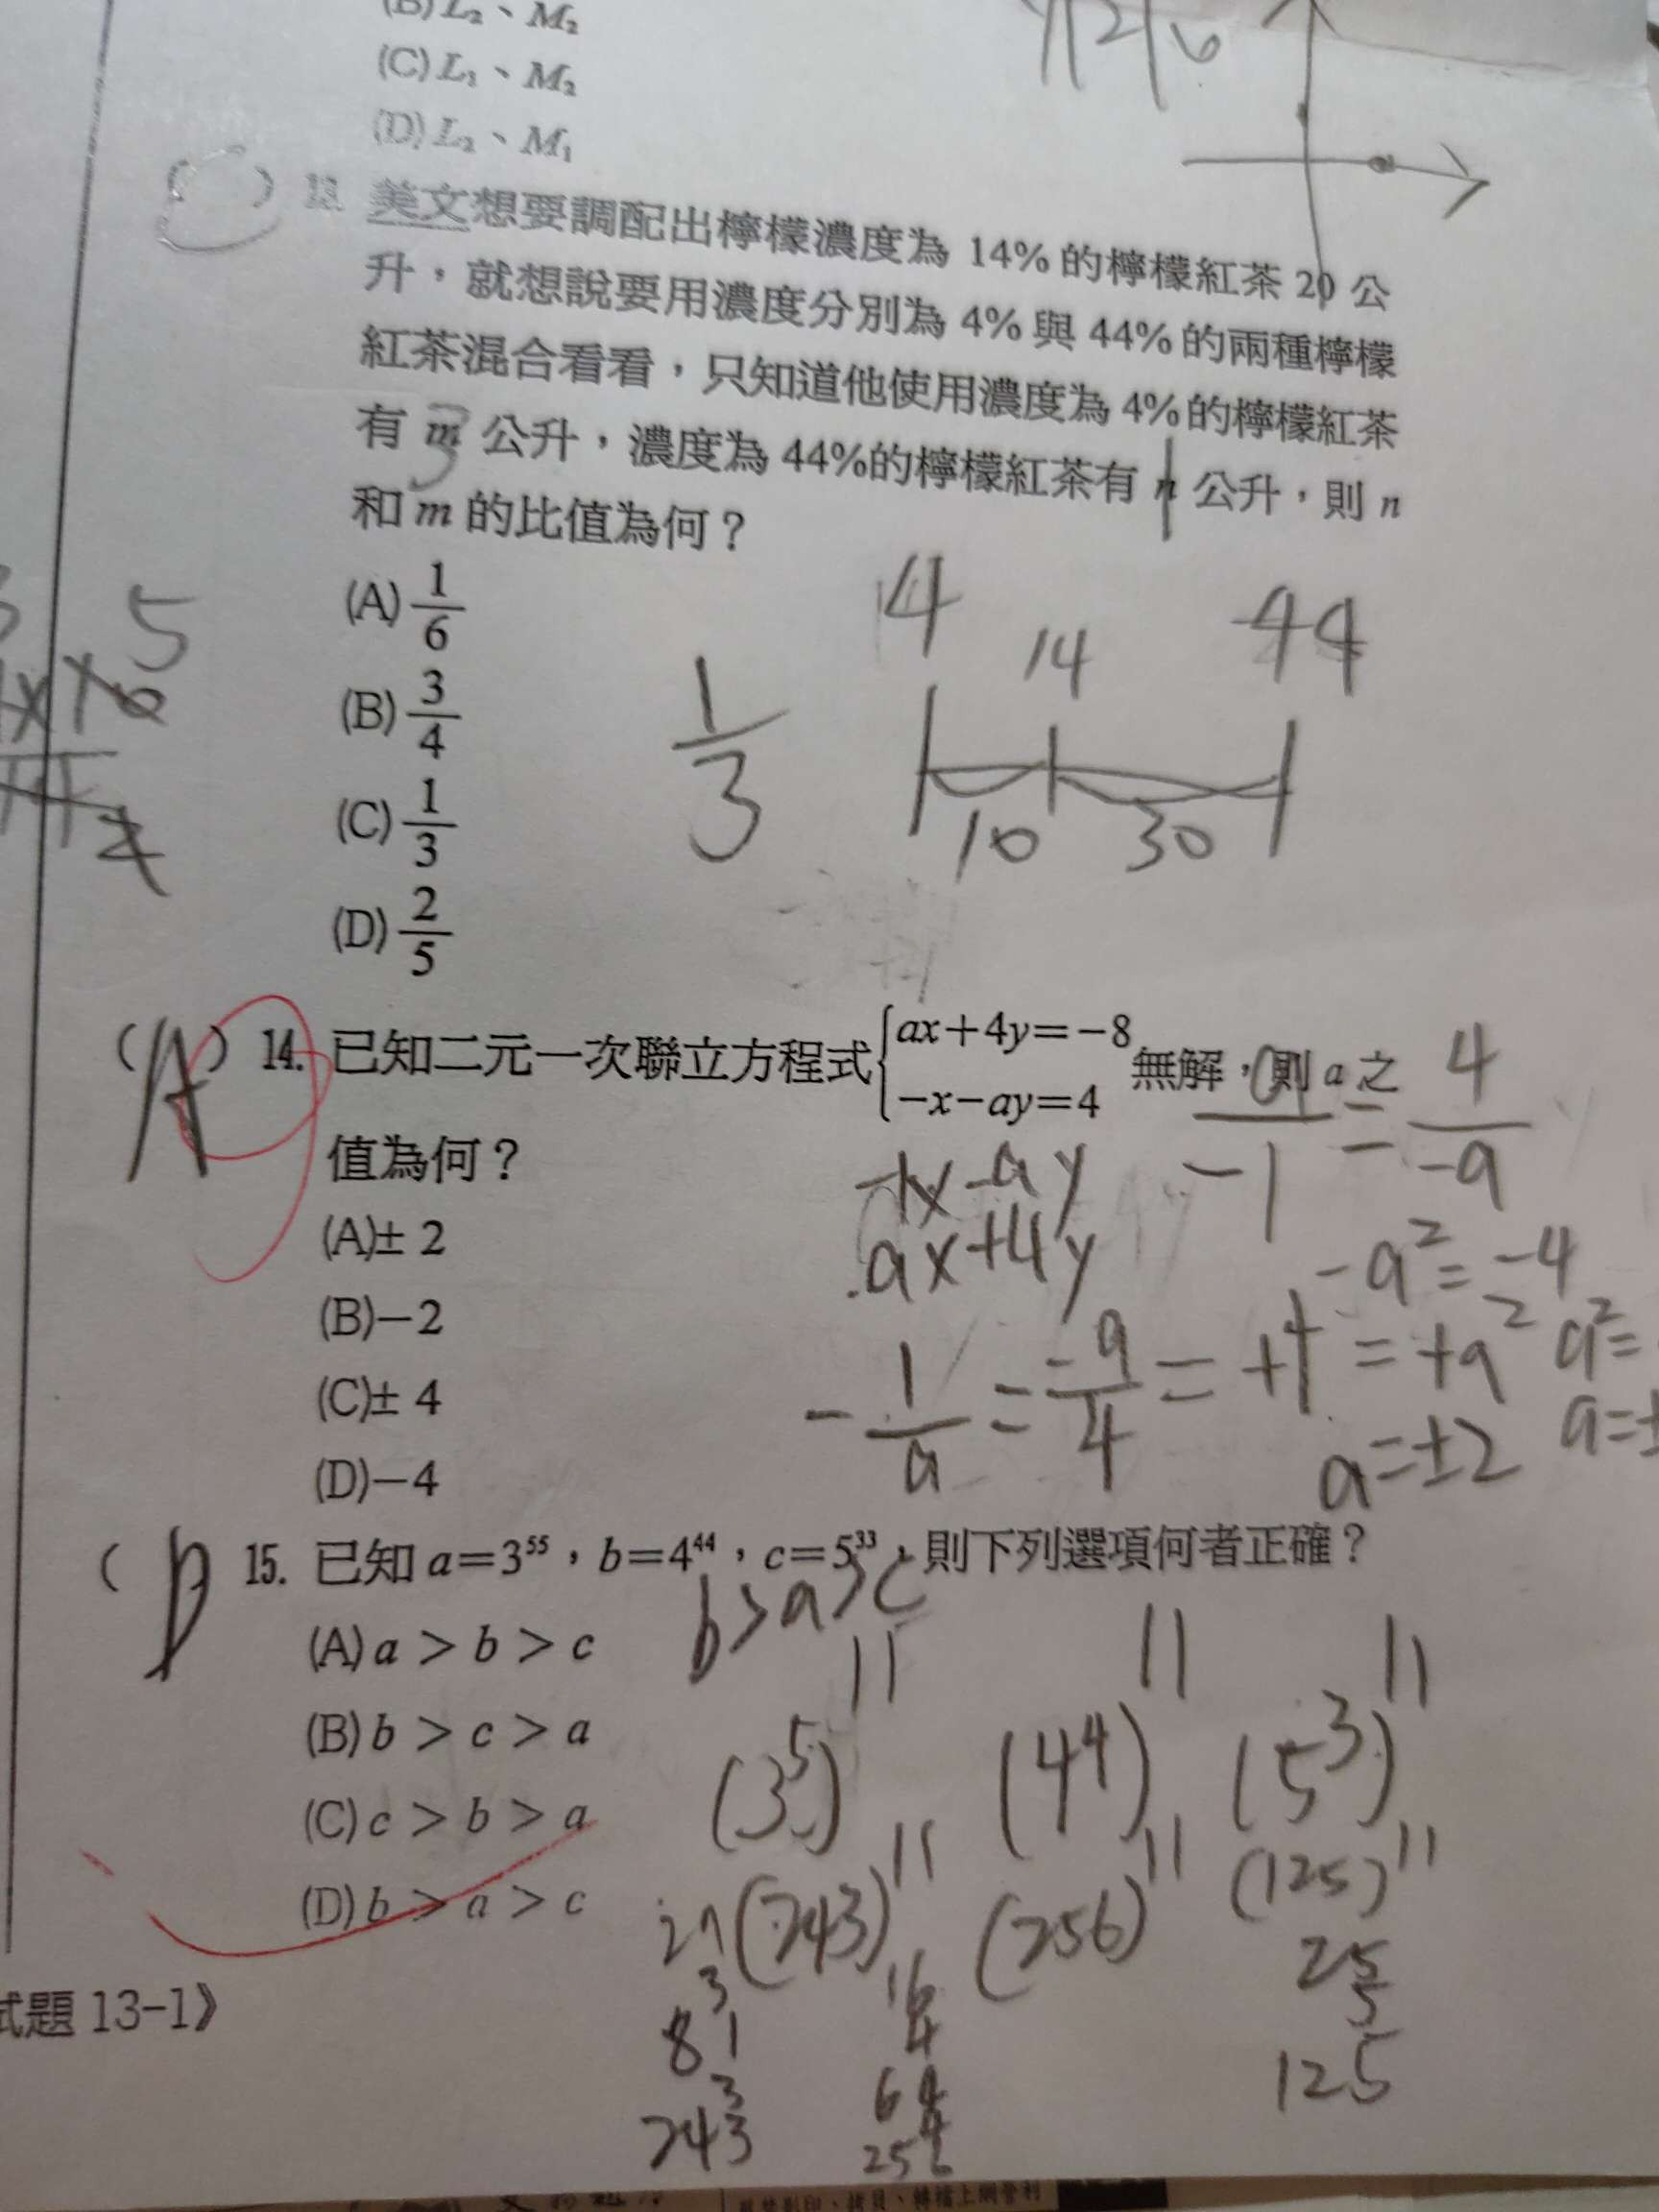 (B) L₂、M₂
(C) L₁、M₂
(D) L₂、M₁
( ) 13. 美文想要調配出檸檬濃度為 14% 的檸檬紅茶 20 公
升，就想說要用濃度分別為 4% 與 44% 的兩種檸檬
紅茶混合看看，只知道他使用濃度為 4% 的檸檬紅茶
有 m 公升，濃度為 44%的檸檬紅茶有 n 公升，則 n
和 m 的比值為何？
(A) 1/6
(B) 3/4
(C) 1/3
(D) 2/5
4 14 44
1/3
10 30
(A) 14. 已知二元一次聯立方程式 { ax+4y=−8
−x−ay=4 無解，則 a 之
值為何？
(A)± 2
(B)−2
(C)± 4
(D)−4
a/−1 = 4/−a
−1x−ay
ax+4y
−a²=−4
−1/a = −a/4 = +4 = +a²
a²=
a=±2
a=±
(D) 15. 已知 a=3⁵⁵，b=4⁴⁴，c=5³³，則下列選項何者正確？
b>a>c
(A) a > b > c
(B) b > c > a
(C) c > b > a
(D) b > a > c
(3⁵)¹¹ (4⁴)¹¹ (5³)¹¹
(243)¹¹ (256)¹¹ (125)¹¹
27
3
81
3
243
16
4
64
4
256
25
5
125
試題 13-1》